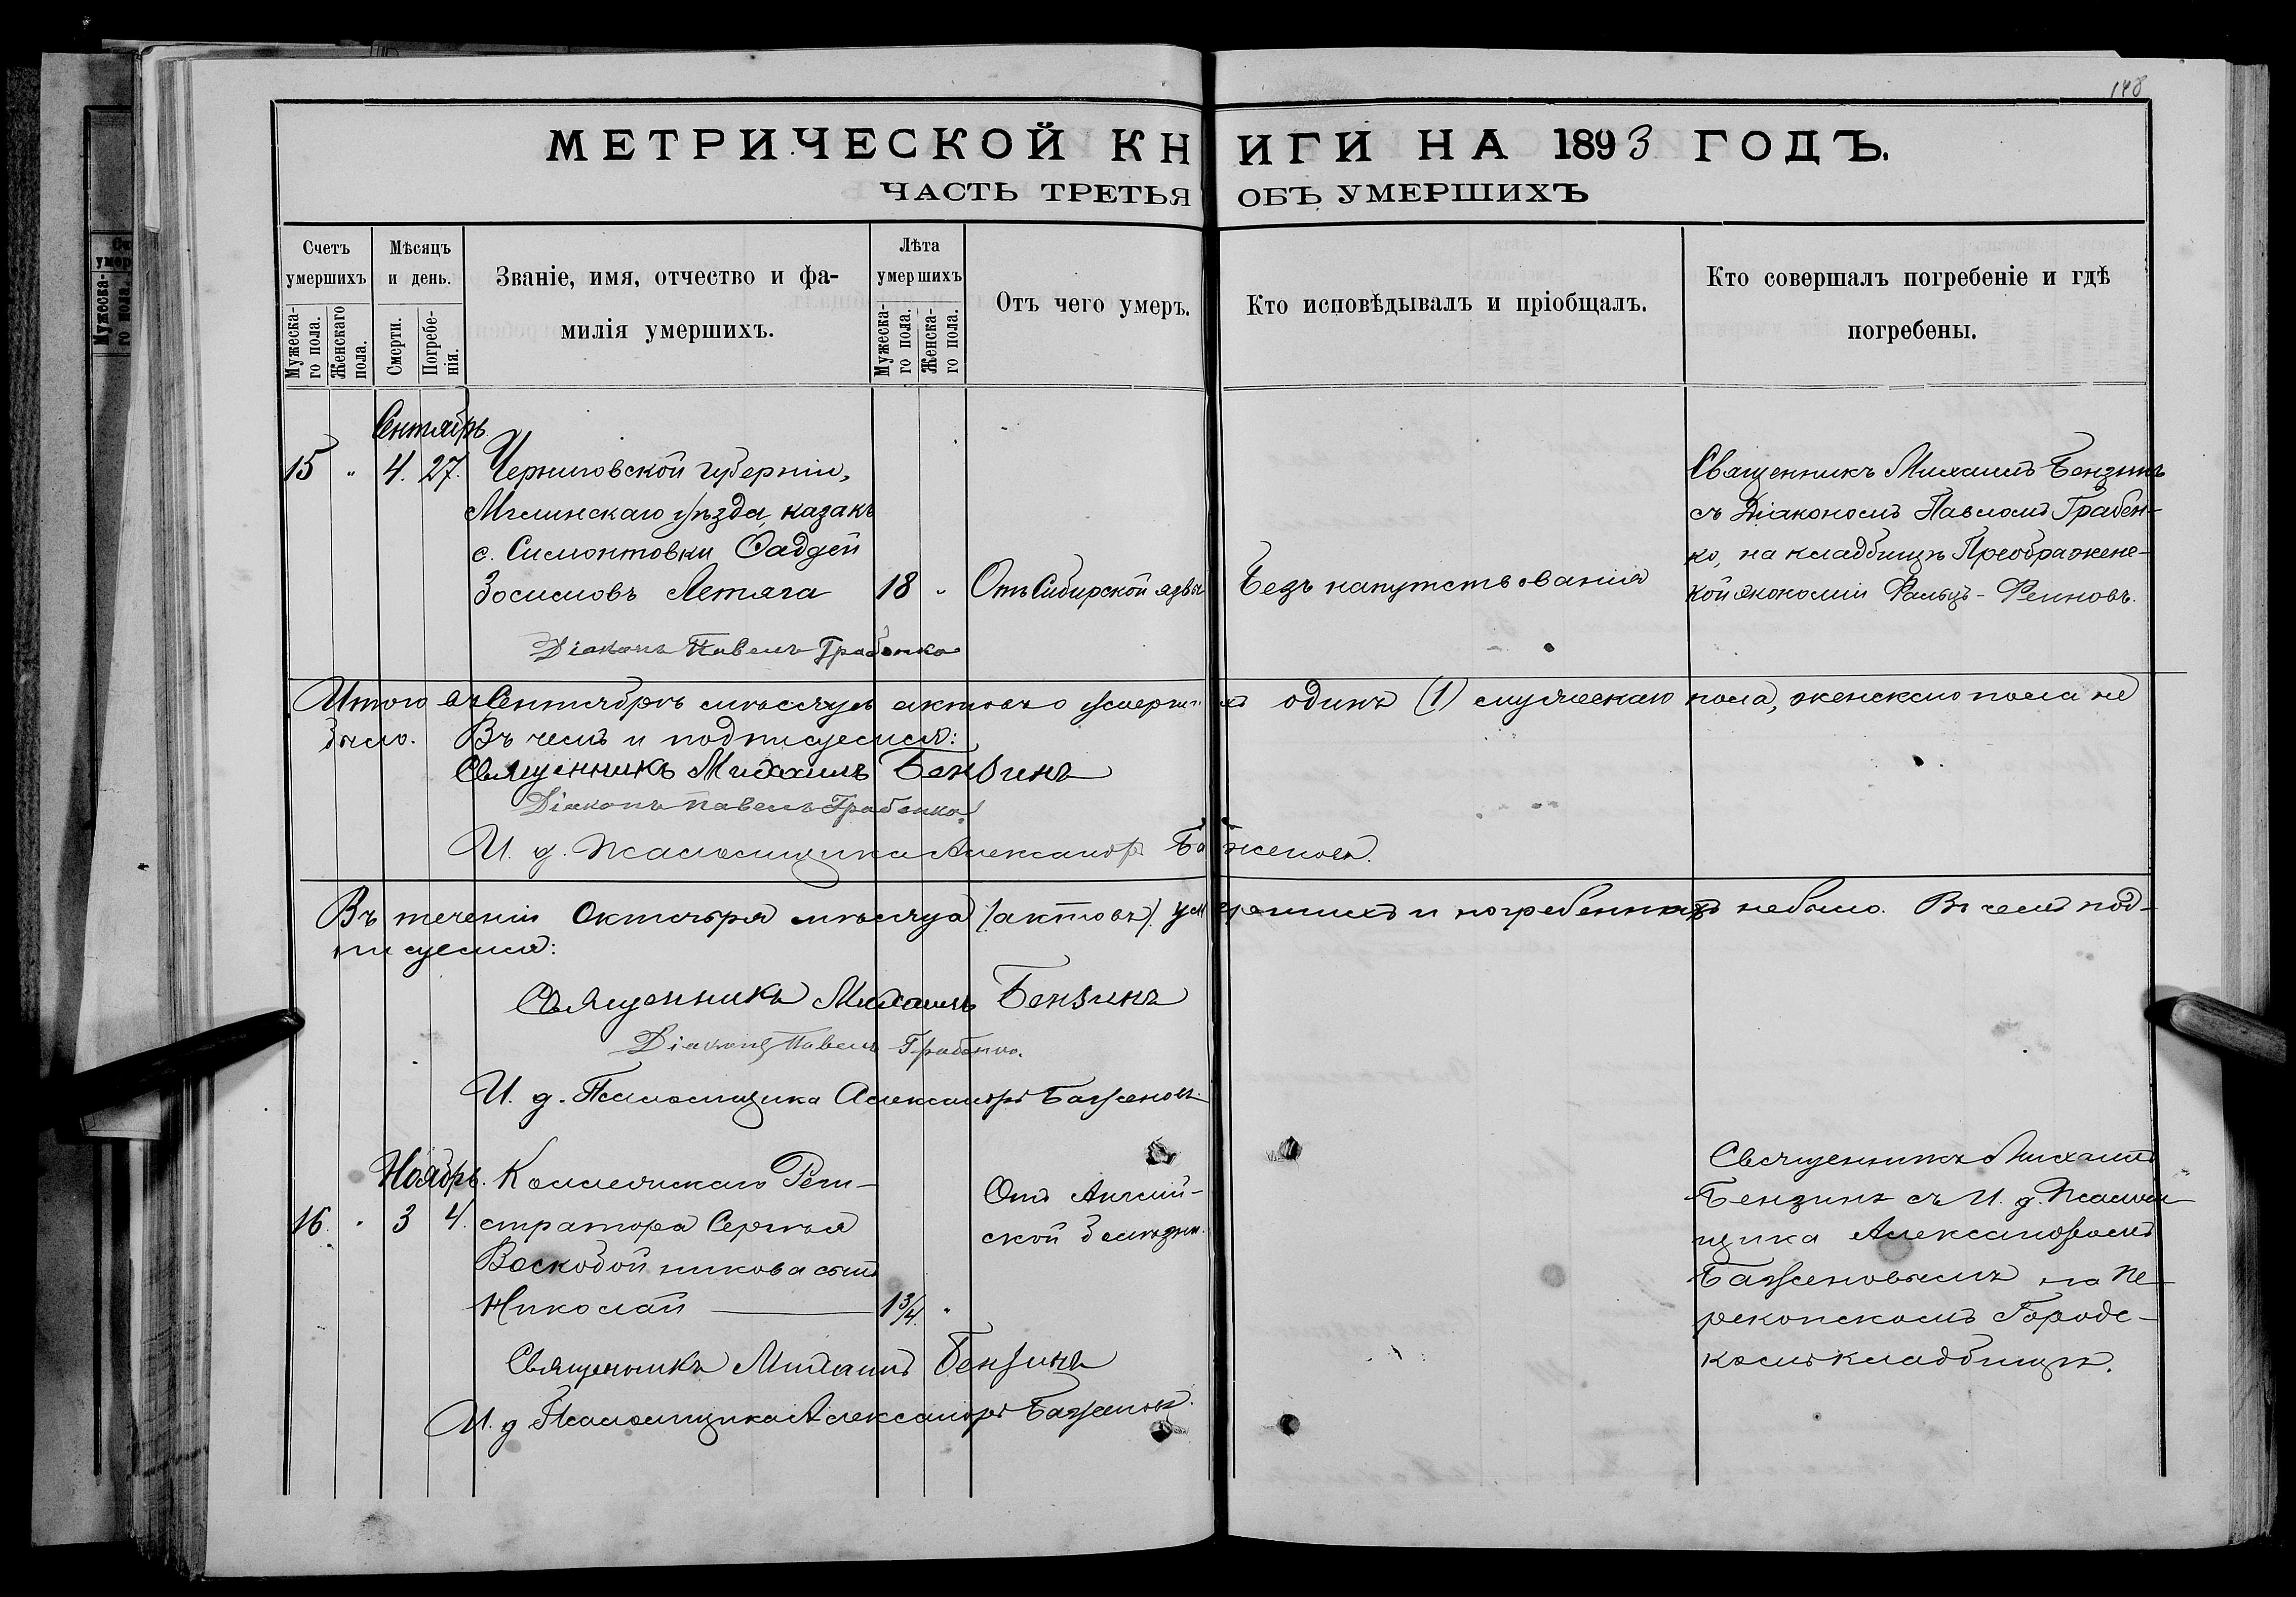 148
МЕТРИЧЕСКОЙ КНИГИ НА 1893 ГОДЪ.
ЧАСТЬ ТРЕТЬЯ ОБЪ УМЕРШИХЪ
Счетъ умершихъ
Мужеска-го пола.
Женскаго пола.
Мѣсяцъ и день.
Смерти.
Погребе-нія.
Званіе, имя, отчество и фа-
милія умершихъ.
Лѣта умершихъ
Мужеска-го пола.
Женска-го пола.
Отъ чего умеръ.
Кто исповѣдывалъ и пріобщалъ.
Кто совершалъ погребеніе и гдѣ
погребены.
Сентябрь.
15 " 4. 27. Черниговской губерніи,
Мглинскаго уѣзда, казакъ
с. Симонтовки Фаддей
Зосимовъ Летяга 18 " Отъ Сибирской язвы
Безъ напутствованія
Священникъ Михаилъ Бензинъ
съ Діакономъ Павломъ Грабен-
ко, на кладбищѣ Преображенс-
кой экономіи Фальцъ-Феиновъ.
Діаконъ Павелъ Грабенко
Итого въ Сентябрѣ мѣсяцѣ актовъ о умершихъ одинъ (1) мужескаго пола, женскаго пола не
было. Въ чемъ и подписуемся:
Священникъ Михаилъ Бензинъ
Діаконъ Павелъ Грабенко
И. д. Псаломщика Александръ Баженовъ.
Въ теченіи Октября мѣсяца (актовъ) умершихъ и погребенныхъ небыло. Въ чемъ под-
писуемся:
Священникъ Михаилъ Бензинъ
Діаконъ Павелъ Грабенко.
И. д. Псаломщика Александръ Баженовъ.
Ноябрь.
16. " 3 4. Коллежскаго Реги-
стратора Сергѣя
Воскобойникова сынъ
Николай 1 3/4. "
Отъ Англій-
ской болѣзни.
Священникъ Михаилъ
Бензинъ съ И. д. Псалом-
щика Александромъ
Баженовымъ на Пе-
рекопскомъ Городс-
комъ кладбищѣ.
Священникъ Михаилъ Бензинъ
И. д Псаломщика Александръ Баженовъ.